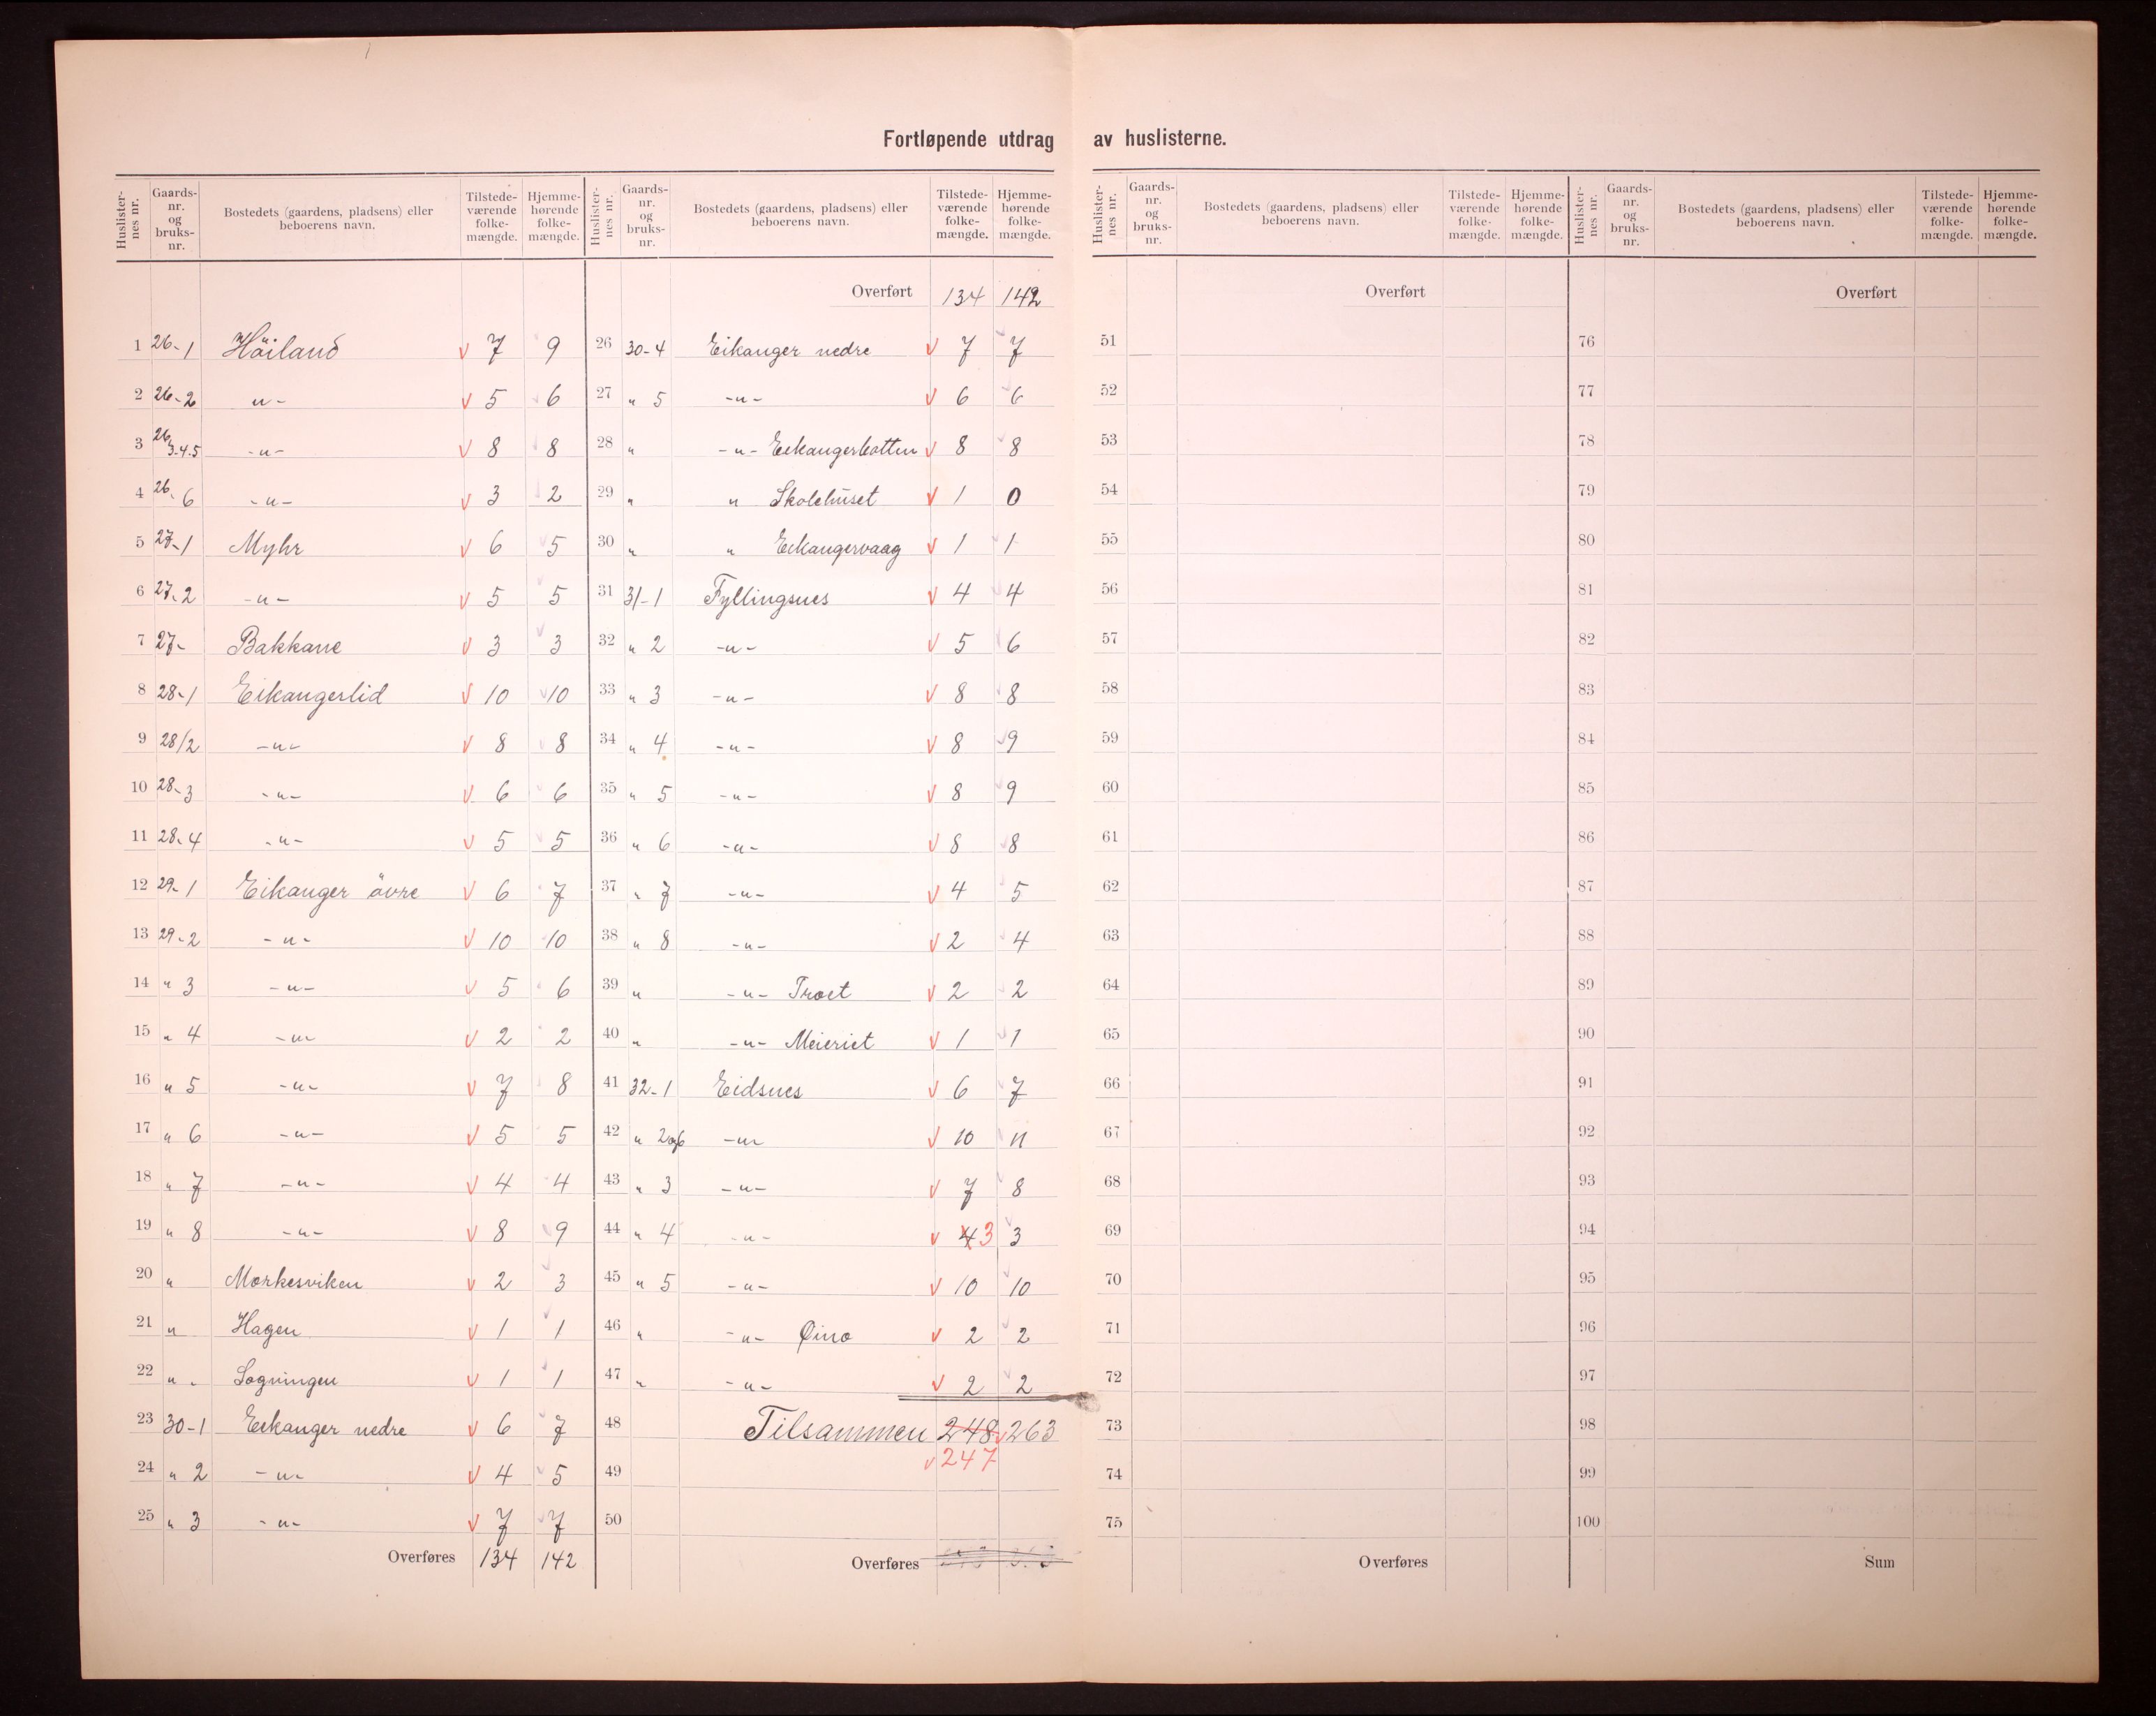 Fortløpende utdrag av huslisterne.
Huslister-nes nr. Gaards-nr. og bruks-nr. Bostedets (gaardens, pladsens) eller beboerens navn. Tilstede-værende folke-mængde. Hjemme-hørende folke-mængde.
1 26-1 Höiland v 7 9
2 26-2 -„- v 5 6
3 26 3.4.5 -„- v 8 8
4 26-6 -„- v 3 2
5 27-1 Myhr v 6 5
6 27-2 -„- v 5 5
7 27- Bakkane v 3 3
8 28-1 Eikangerlid v 10 10
9 28/2 -„- v 8 8
10 28-3 -„- v 6 6
11 28-4 -„- v 5 5
12 29-1 Eikanger övre v 6 7
13 29-2 -„- v 10 10
14 „ 3 -„- v 5 6
15 „ 4 -„- v 2 2
16 „ 5 -„- v 7 8
17 „ 6 -„- v 5 5
18 „ 7 -„- v 4 4
19 „ 8 -„- v 8 9
20 „ Mørkesviken v 2 3
21 „ Hagen v 1 1
22 „ - Søgningen v 1 1
23 30-1 Eikanger nedre v 6 7
24 „ 2 -„- v 4 5
25 „ 3 -„- v 7 7
Overføres 134 142
Huslister-nes nr. Gaards-nr. og bruks-nr. Bostedets (gaardens, pladsens) eller beboerens navn. Tilstede-værende folke-mængde. Hjemme-hørende folke-mængde.
Overført 134 142
26 30-4 Eikanger nedre v 7 7
27 „ 5 -„- v 6 6
28 „ -„- Eikangerbotten v 8 8
29 „ „ Skolehuset v 1 0
30 „ „ Eikangervaag v 1 1
31 31-1 Fyllingsnes v 4 4
32 „ 2 -„- v 5 6
33 „ 3 -„- v 8 8
34 „ 4 -„- v 8 9
35 „ 5 -„- v 8 9
36 „ 6 -„- v 8 8
37 „ 7 -„- v 4 5
38 „ 8 -„- v 2 4
39 „ -„- Træet v 2 2
40 „ -„- Meieriet v 1 1
41 32-1 Eidsnes v 6 7
42 „ 2og6 -„- v 10 11
43 „ 3 -„- v 7 8
44 „ 4 -„- v 4 3 3
45 „ 5 -„- v 10 10
46 „ -„- v 2 2
47 „ -„- v 2 2
48 Tilsammen 248 v 263
49 v 247
50
Overføres
Huslister-nes nr. Gaards-nr. og bruks-nr. Bostedets (gaardens, pladsens) eller beboerens navn. Tilstede-værende folke-mængde. Hjemme-hørende folke-mængde.
Overført
51
52
53
54
55
56
57
58
59
60
61
62
63
64
65
66
67
68
69
70
71
72
73
74
75
Overføres
Huslister-nes nr. Gaards-nr. og bruks-nr. Bostedets (gaardens, pladsens) eller beboerens navn. Tilstede-værende folke-mængde. Hjemme-hørende folke-mængde.
Overført
76
77
78
79
80
81
82
83
84
85
86
87
88
89
90
91
92
93
94
95
96
97
98
99
100
Sum